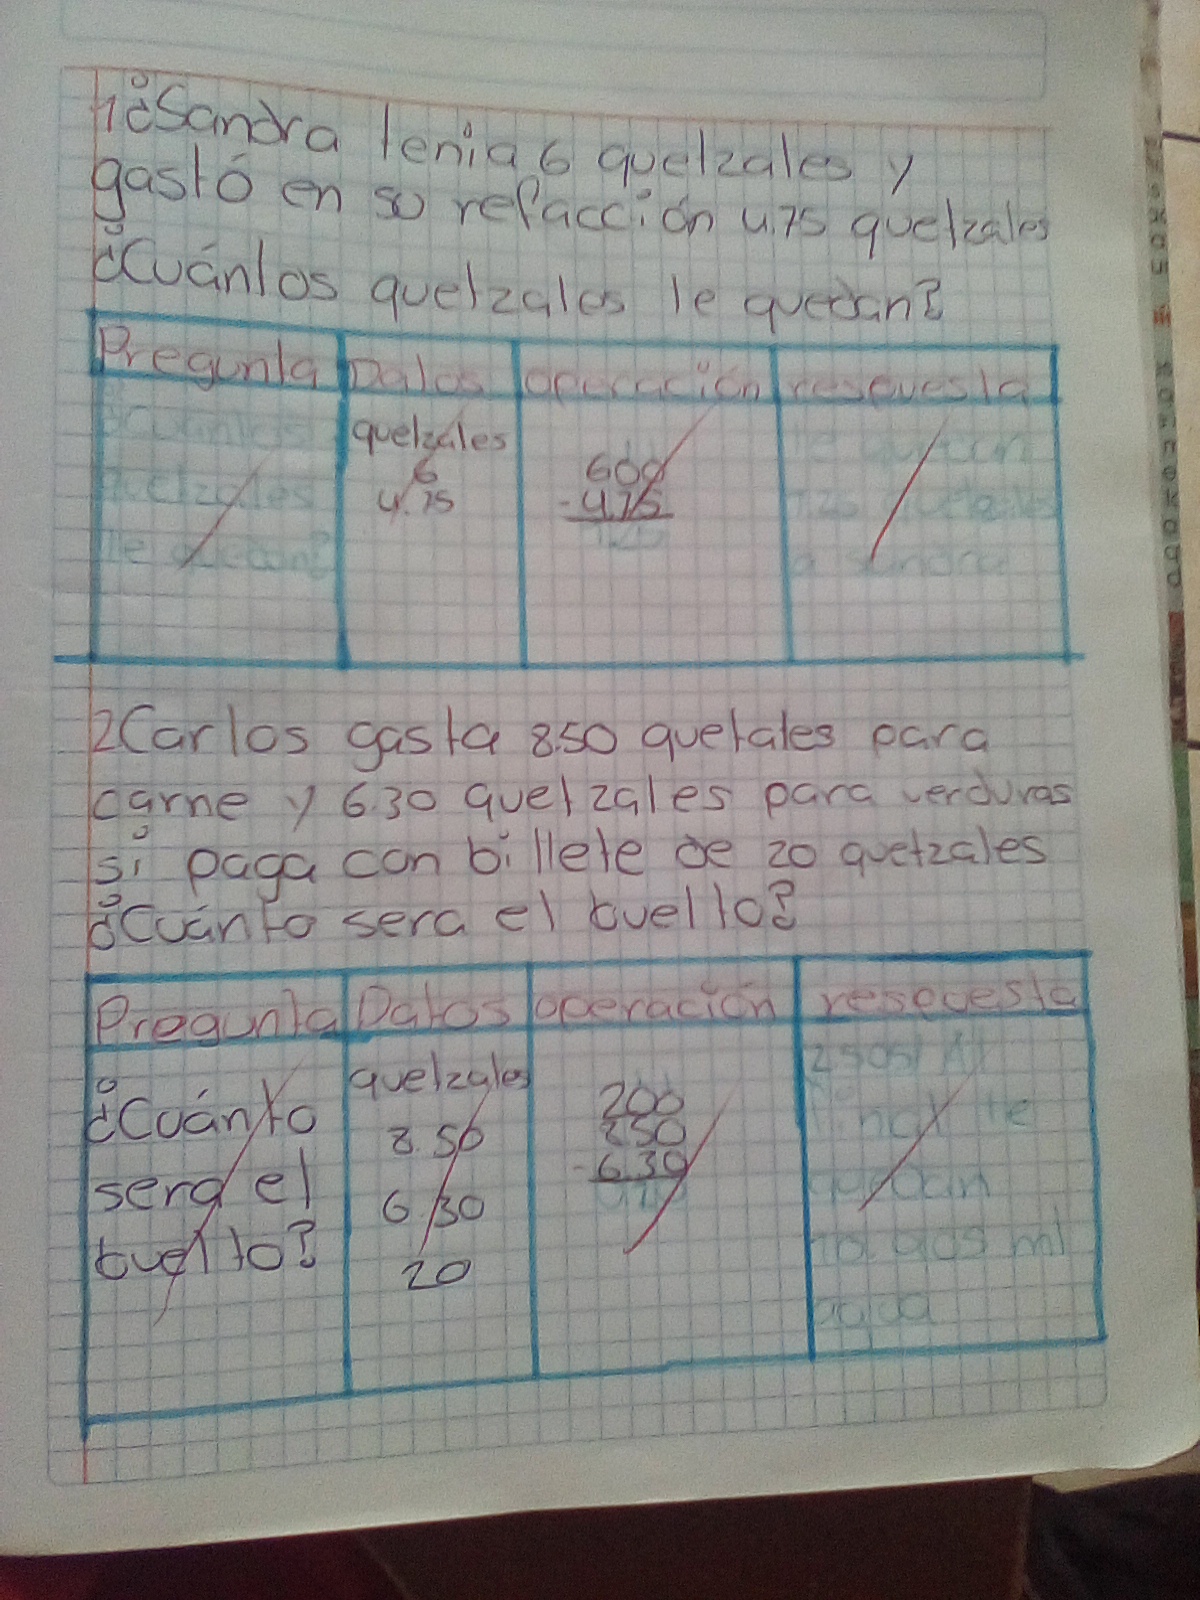 1 ¿Sandra tenia 6 quetzales y
gastó en su refacción 4.75 quetzales
¿Cuántos quetzales le quedan?
Pregunta Datos operación respuesta
¿Cuántos quetzales le quedan
quetzales 6 600 1.25 quetzales
le quedan? 4.75 - 4.75 a sandra
1.25
2 Carlos gasta 8.50 quetales para
carne y 6.30 quetzales para verduras
si paga con billete de 20 quetzales
¿Cuánto sera el buelto?
Pregunta Datos operación respuesta
¿Cuánto quetzales 200
sera el 8.50 850
buelto? 6.30 - 6.30
20
quedan
ml
agua